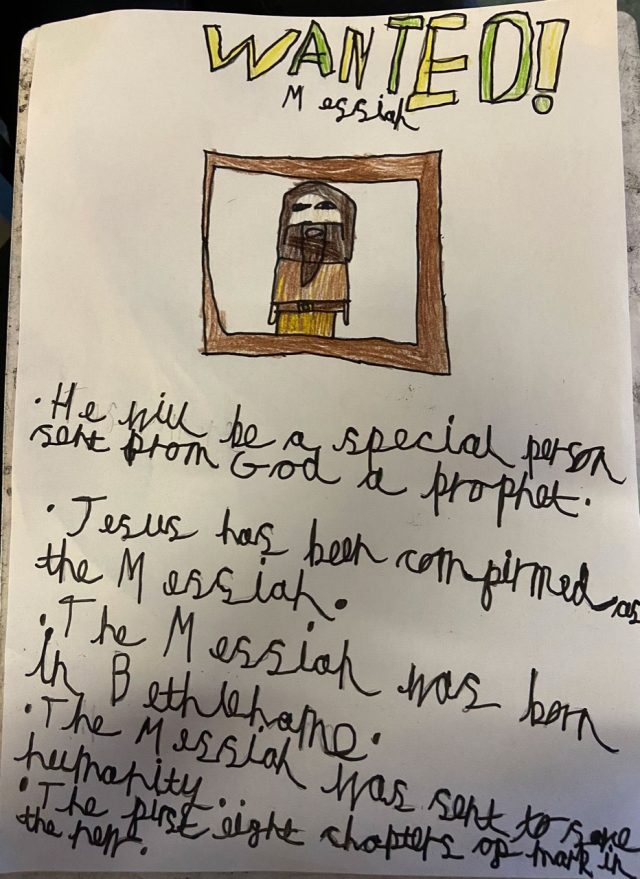 WANTED!
Messiah
• He will be a special person
sent from God a prophet.
• Jesus has been confirmed as
the Messiah.
• The Messiah was born
in Bethlehame.
• The Messiah was sent to save
humanity..
• The first eight chapters of mark in
the